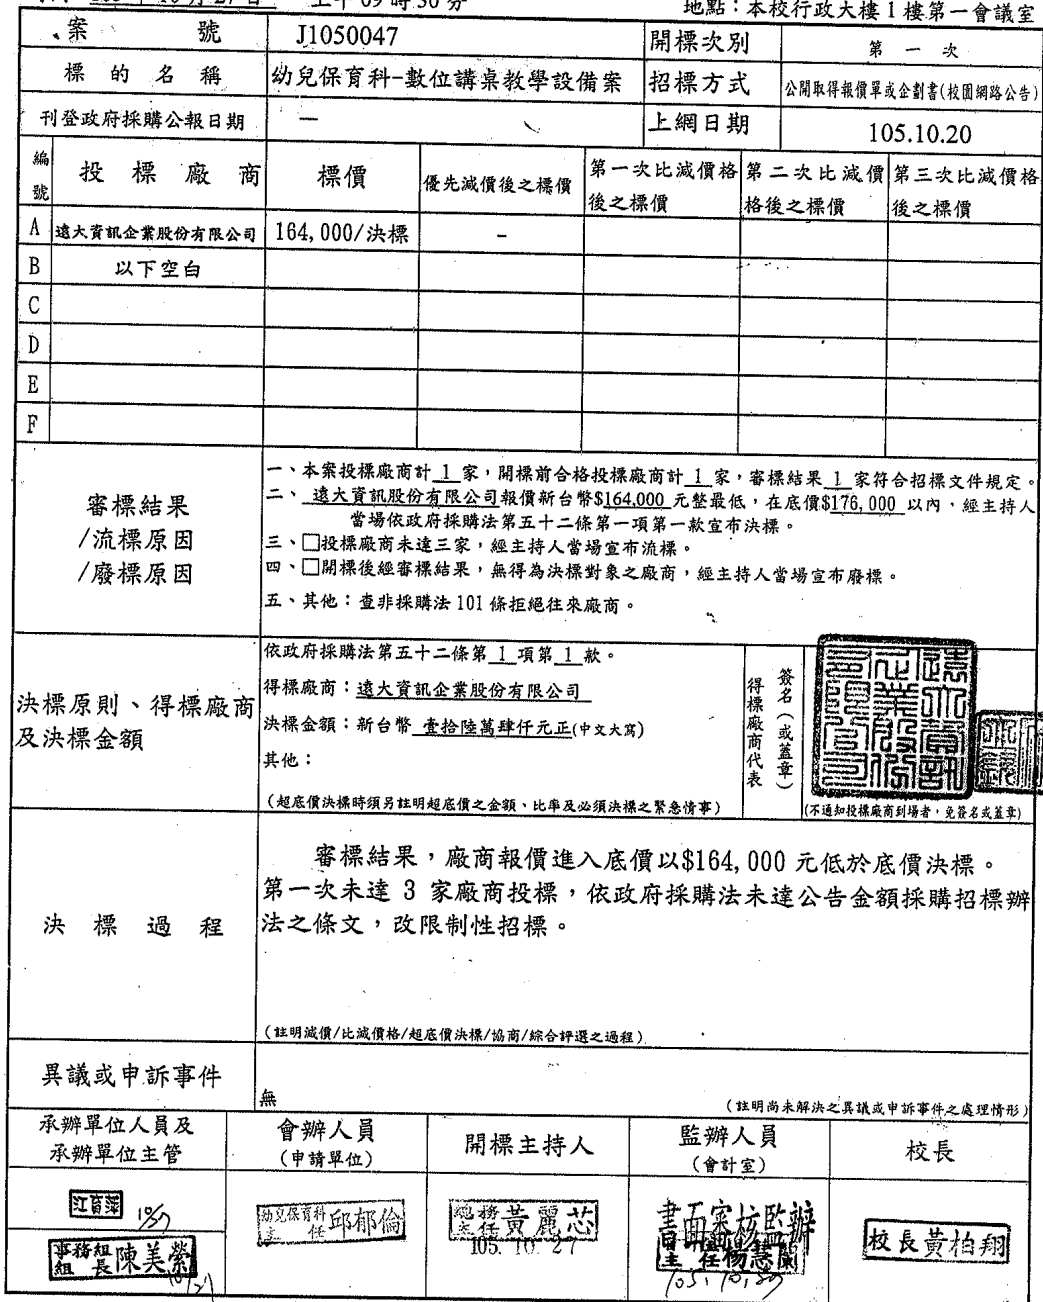 105 年 10 月 27 日 上午 09 時 30 分 地點：本校行政大樓 1 樓第一會議室
案 號 J1050047 開標次別 第 一 次
標 的 名 稱 幼兒保育科-數位講桌教學設備案 招標方式 公開取得報價單或企劃書(校園網路公告)
刊登政府採購公報日期 — 上網日期 105.10.20
編號 投 標 廠 商 標價 優先減價後之標價 第一次比減價格後之標價 第二次比減價格後之標價 第三次比減價格後之標價
A 遠大資訊企業股份有限公司 164,000/決標 -
B 以下空白
C
D
E
F
審標結果
/流標原因
/廢標原因
一、本案投標廠商計 1 家，開標前合格投標廠商計 1 家，審標結果 1 家符合招標文件規定。
二、 遠大資訊股份有限公司報價新台幣$164,000 元整最低，在底價$176,000 以內，經主持人
當場依政府採購法第五十二條第一項第一款宣布決標。
三、□投標廠商未達三家，經主持人當場宣布流標。
四、□開標後經審標結果，無得為決標對象之廠商，經主持人當場宣布廢標。
五、其他：查非採購法 101 條拒絕往來廠商。
決標原則、得標廠商
及決標金額
依政府採購法第五十二條第 1 項第 1 款。
得標廠商：遠大資訊企業股份有限公司
決標金額：新台幣 壹拾陸萬肆仟元正(中文大寫)
其他：
(超底價決標時須另註明超底價之金額、比率及必須決標之緊急情事)
得標廠商代表
簽名（或蓋章）
遠大資訊企業股份有限公司
(不通知投標廠商到場者，免簽名或蓋章)
決 標 過 程
審標結果，廠商報價進入底價以$164,000 元低於底價決標。
第一次未達 3 家廠商投標，依政府採購法未達公告金額採購招標辦
法之條文，改限制性招標。
(註明減價/比減價格/超底價決標/協商/綜合評選之過程)
異議或申訴事件
無
(註明尚未解決之異議或申訴事件之處理情形)
承辦單位人員及
承辦單位主管
會辦人員
(申請單位)
開標主持人
監辦人員
(會計室)
校長
江育萍 10/27
事務組組長陳美縈
10/27
幼兒保育科主任邱郁倫
總務主任黃麗芯
105. 10. 27
書面審核監辦
主任楊慧
105.10.27
校長黃柏翔